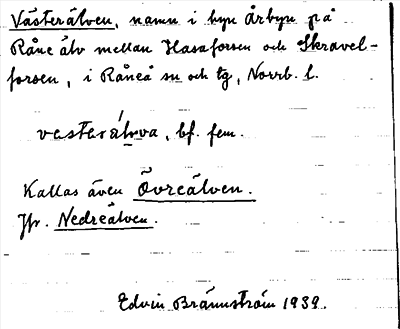 Västerälven, namn i byn Årbyn på
Råne älv mellan Hasaforsen och Skravel-
forsen, i Råneå sn och tg, Norrb. l.
vesterálva, bf. fem.
Kallas även Övreälven.
Jfr. Nedreälven.
Edvin Brännström 1939.